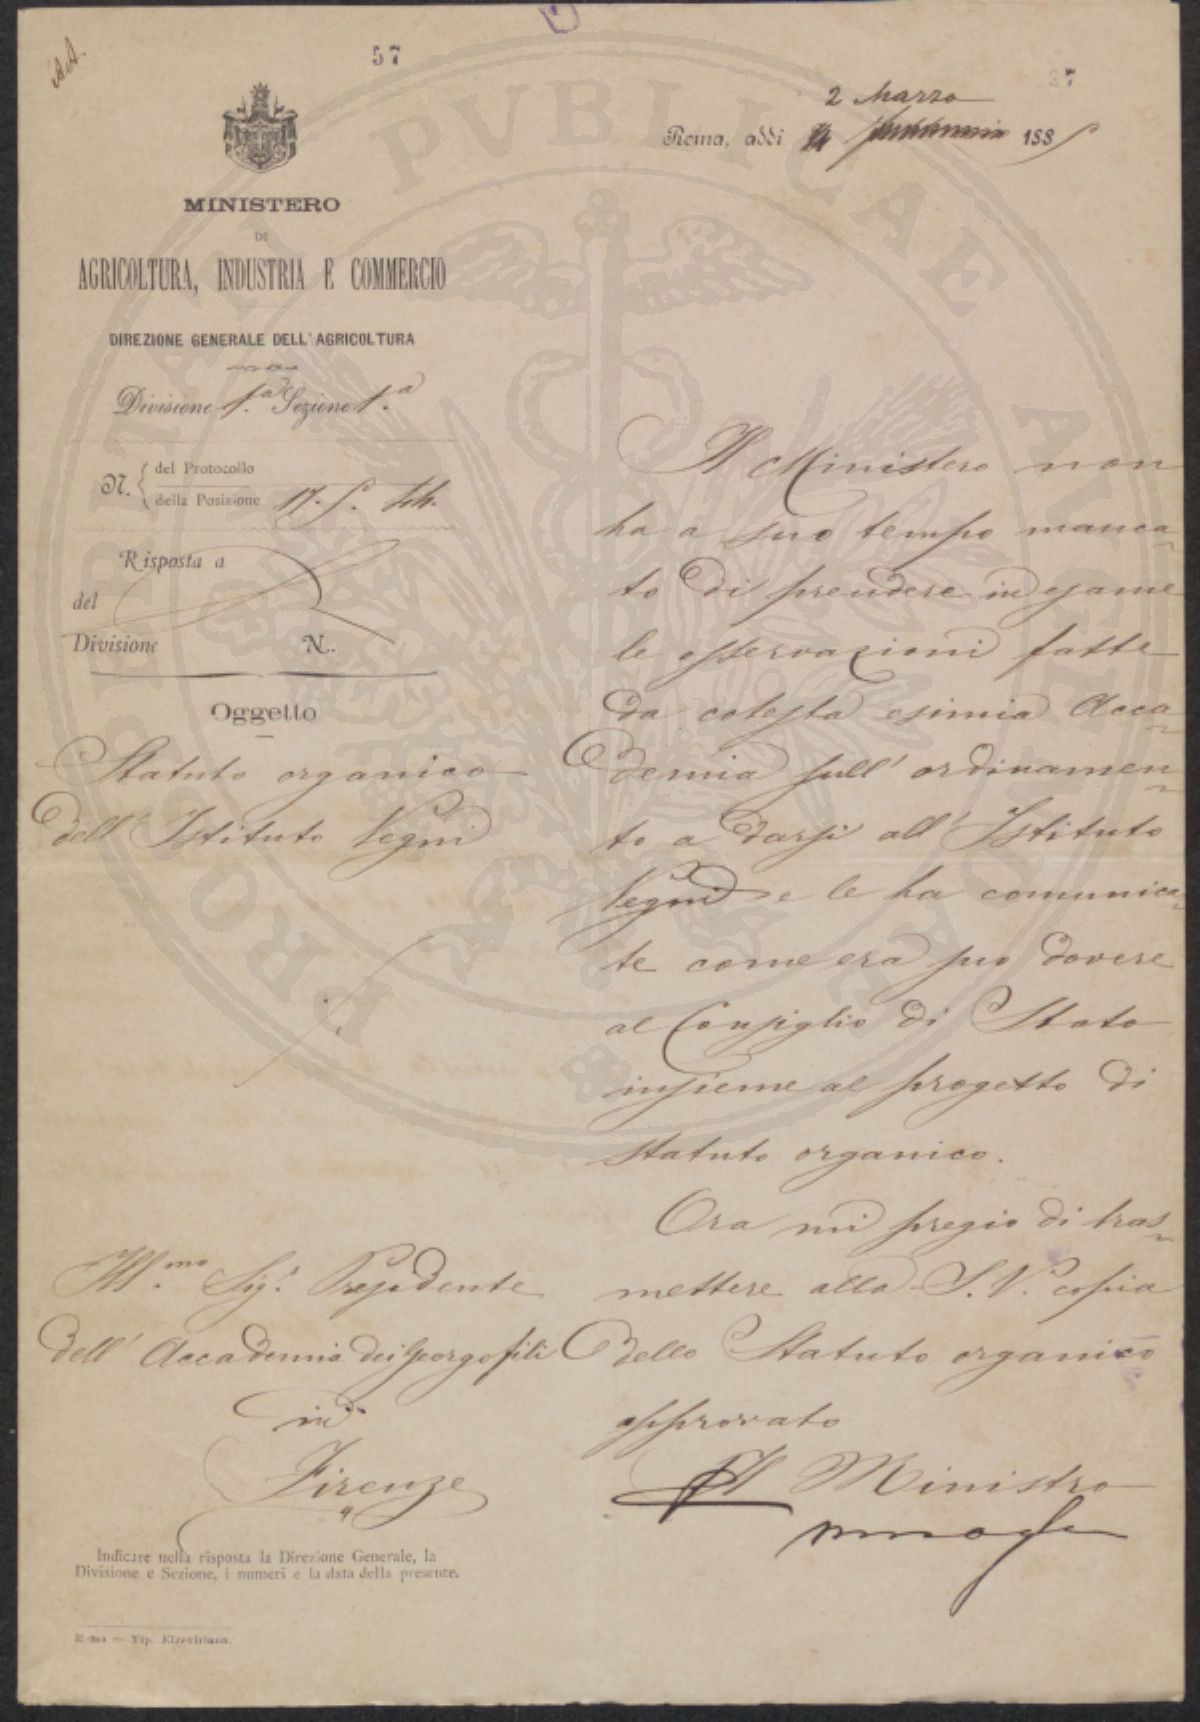 AA.
57
37
MINISTERO
DI
AGRICOLTURA, INDUSTRIA E COMMERCIO
DIREZIONE GENERALE DELL'AGRICOLTURA
Divisione 1.a Sezione 1.a
N. del Protocollo
della Posizione 17. S. 44.
Risposta a
del
Divisione N.
Oggetto
Statuto organico
dell' Istituto Vegni
Ill.mo Sig. Presidente
dell' Accademia dei Georgofili
in
Firenze
Indicare nella risposta la Direzione Generale, la
Divisione e Sezione, i numeri e la data della presente.
Tip. Elzeviriana.
2 Marzo
Roma, addì 1885
Il Ministero non
ha a suo tempo manca-
to di prendere in esame
le osservazioni fatte
da cotesta esimia Acca-
demia sull' ordinamen-
to a darsi all' Istituto
Vegni e le ha comunica-
te come era suo dovere
al Consiglio di Stato
insieme al progetto di
statuto organico.
Ora mi pregio di tras-
mettere alla S. V. copia
dello Statuto organico
approvato
Il Ministro
PROSPERITATI PVBLICAE AVGENDAE